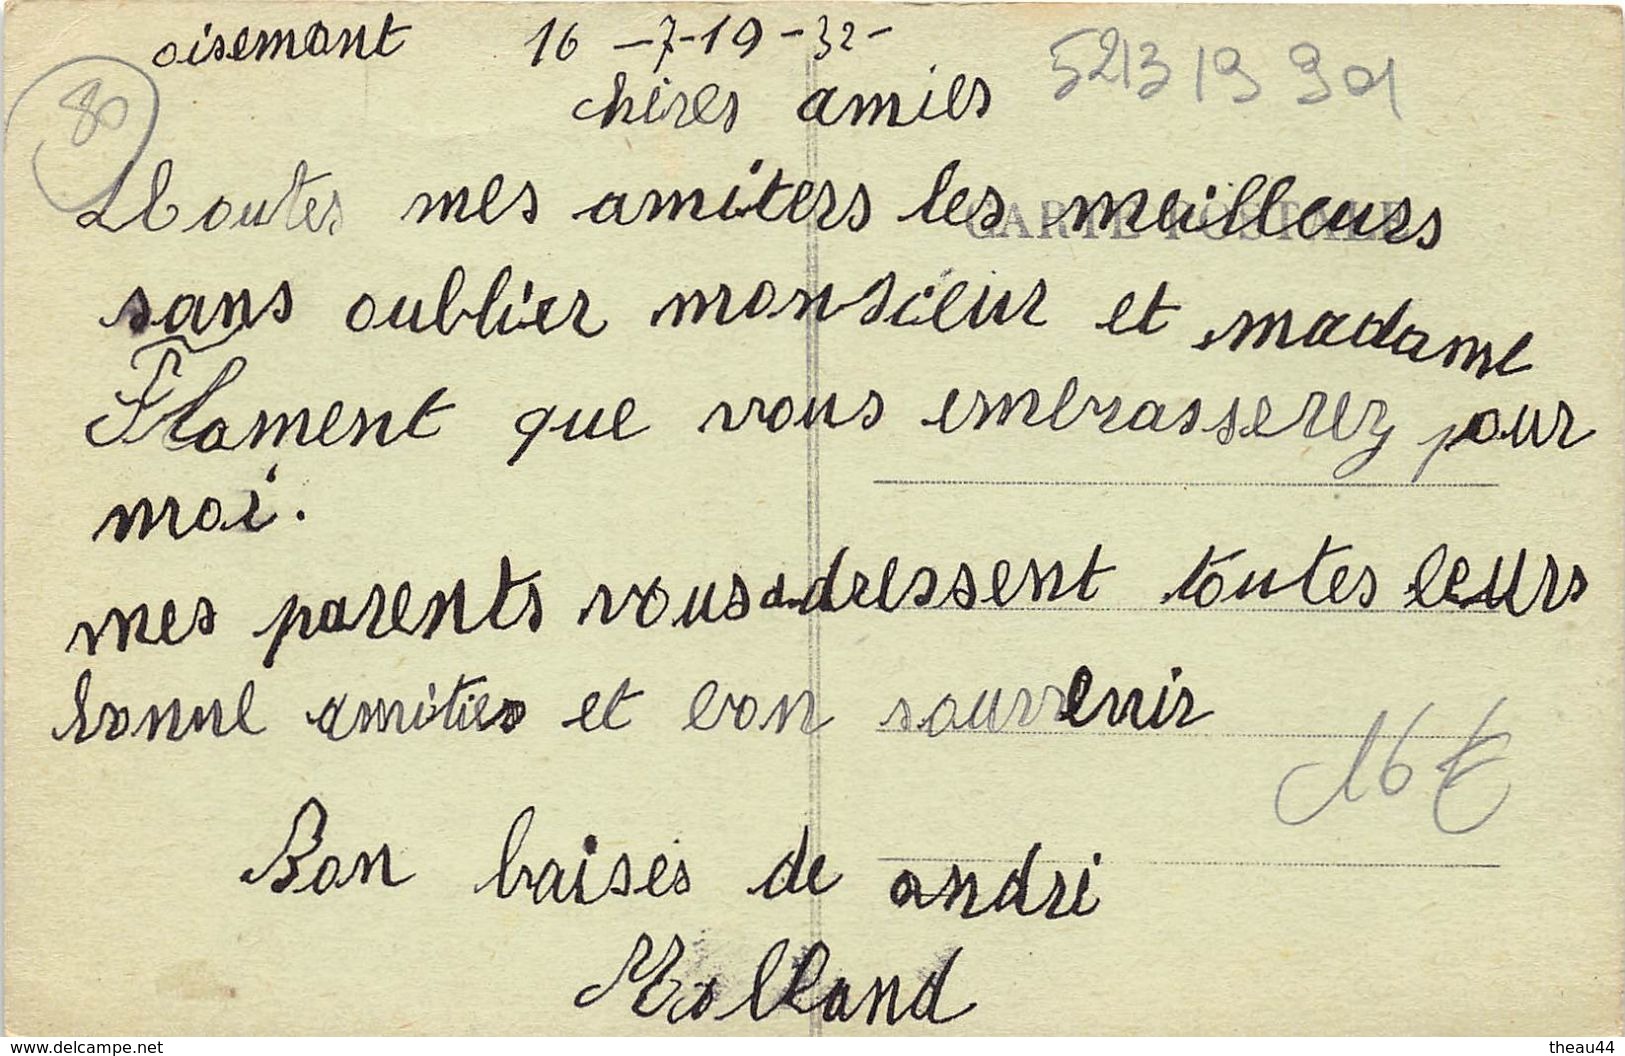 oisemont 16 -7-19-32-
80
chères amies
5213199d
toutes mes amiters les meilleurs
CARTE POSTALE
sans oublier monsieur et madame
Flament que vous embrasserez pour
moi.
mes parents vous adressent toutes leurs
bonne amities et bon souvenir
16€
Bon baises de andri
Holland
www.delcampe.net theau44